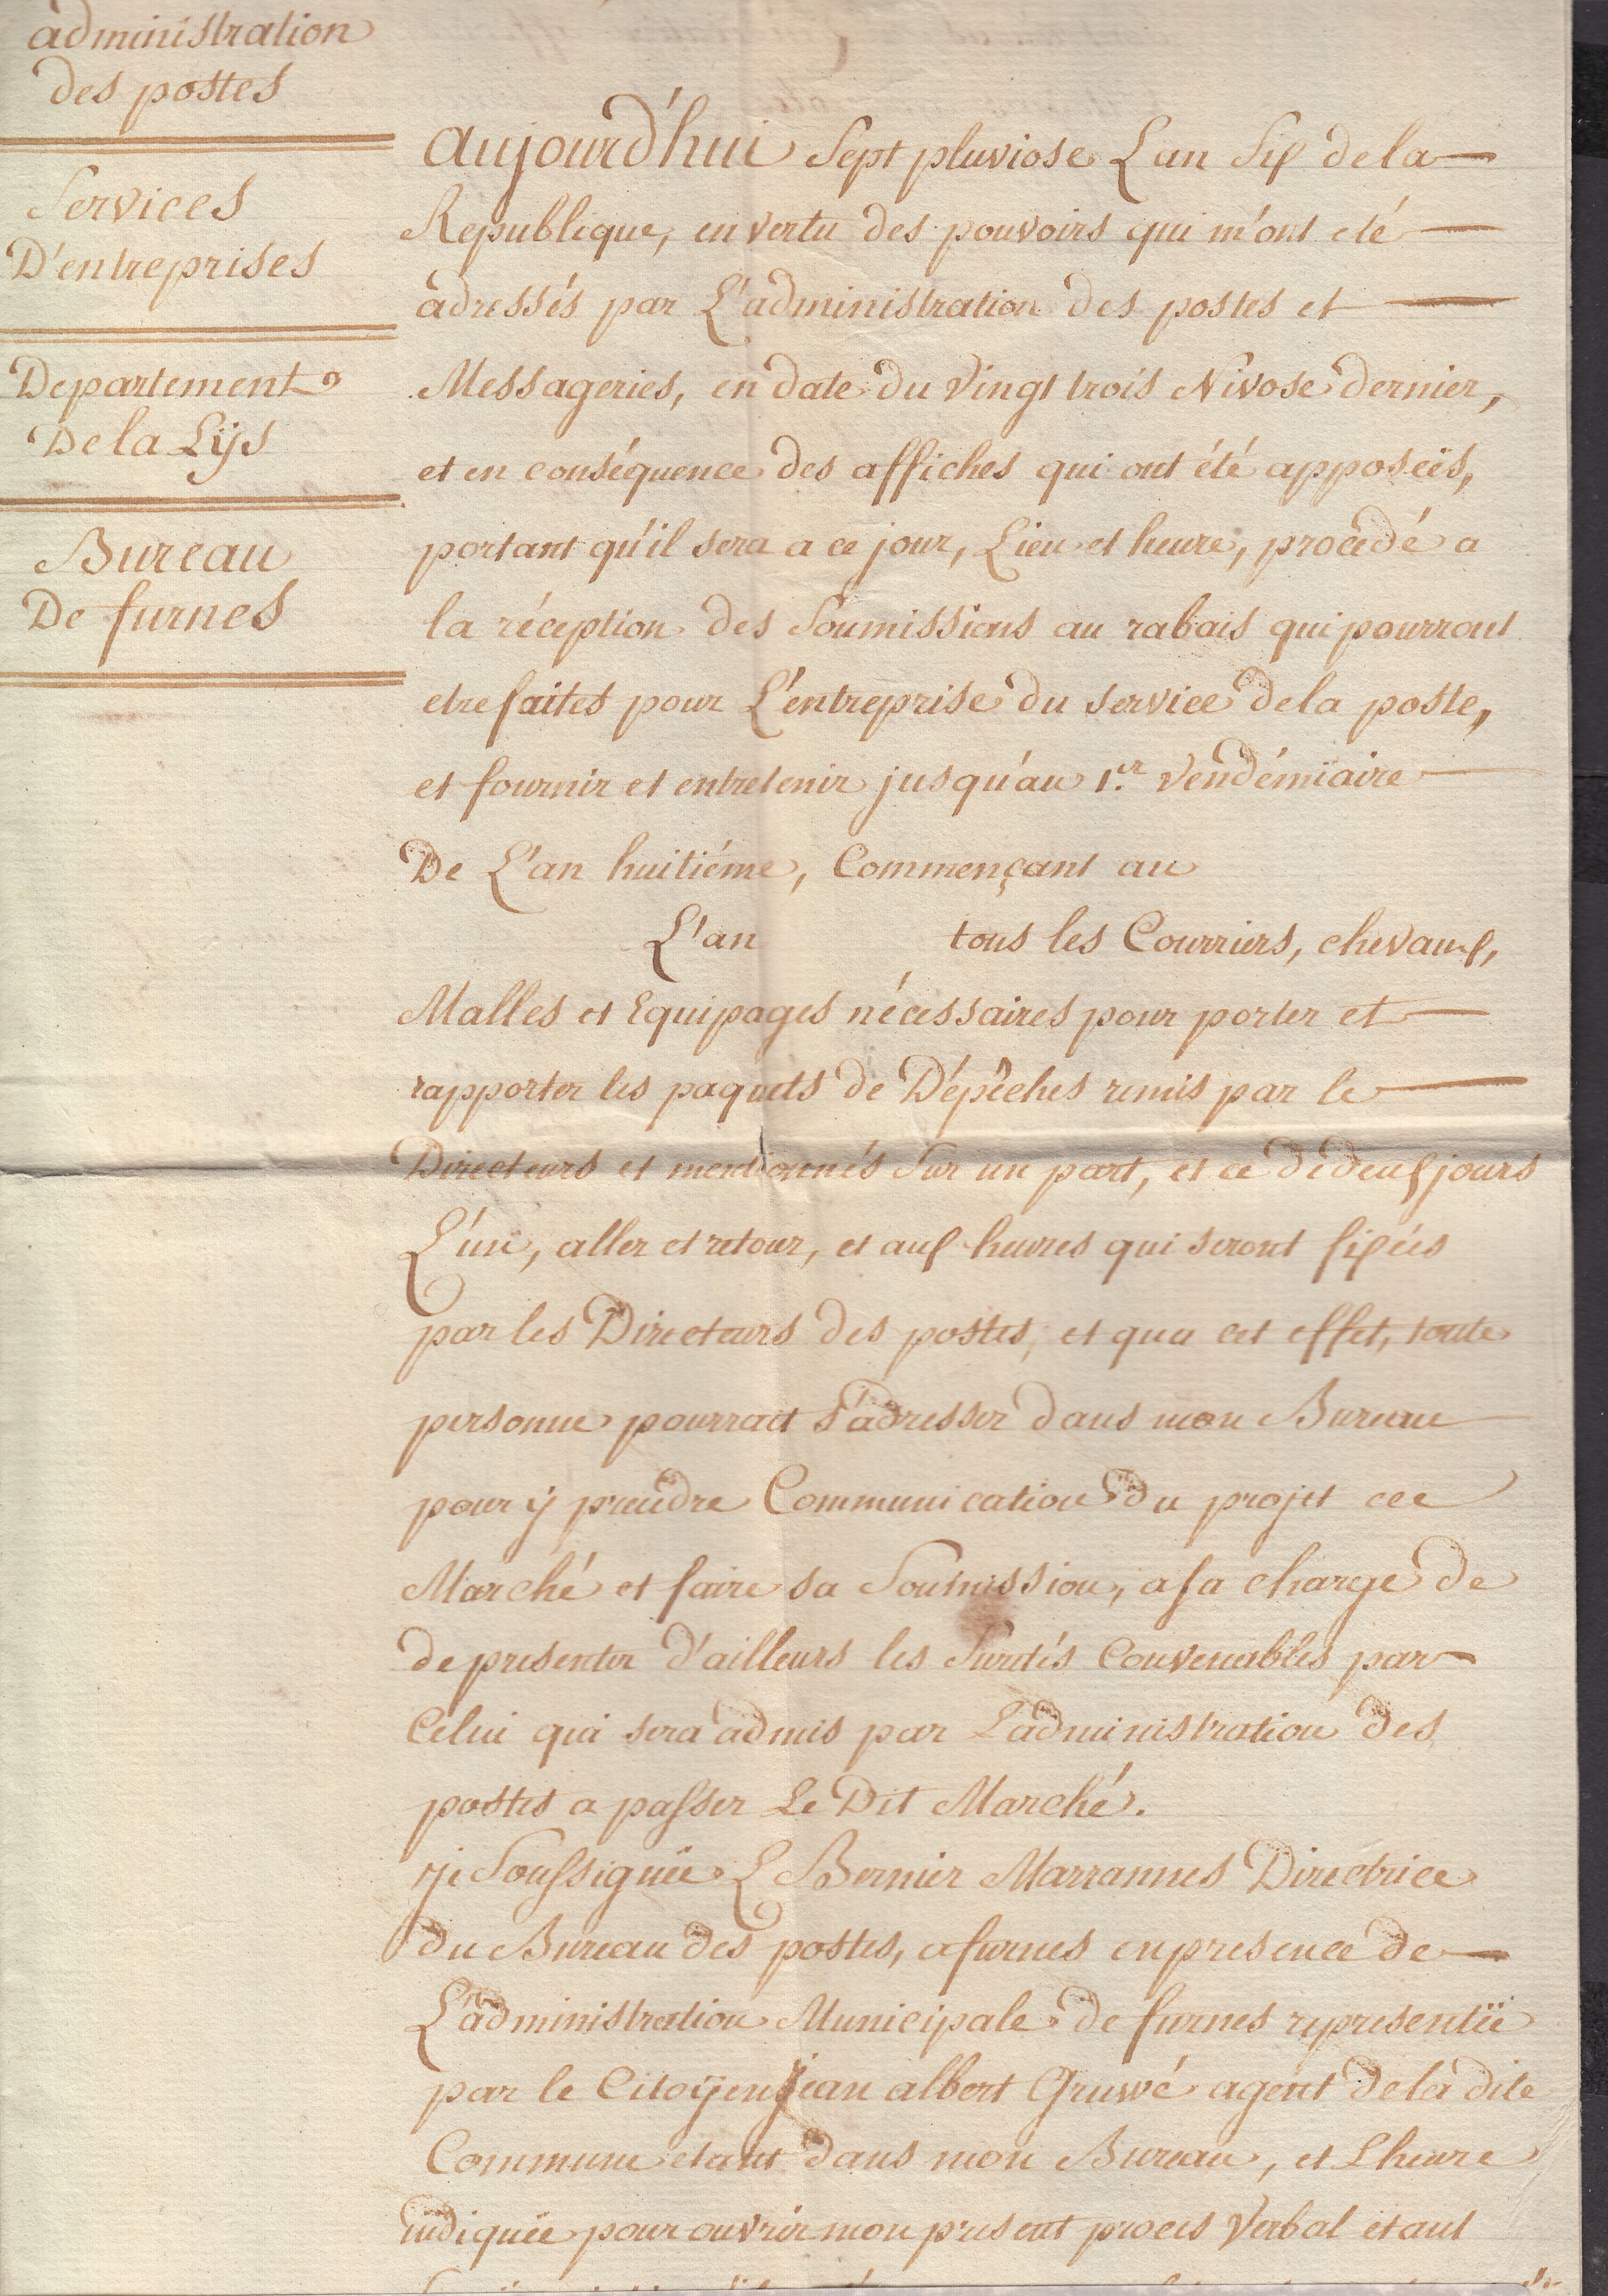 administration
des postes
Services
D'entreprises
Departement
De la Lÿs
Bureau
De furnes
aujourd'hui Sept pluviose L'an Six de la
Republique, en vertu des pouvoirs qui m'ont eté
adressés par L'administration des postes et
Messageries, en date du Vingt trois Nivose dernier,
et en conséquence des affiches qui ont été apposeës,
portant qu'il sera a ce jour, Lieu et heure, procédé a
la réception des Soumissions au rabais qui pourront
etre faites pour L'entreprise du service de la poste,
et fournir et entretenir jusqu'au 1.er Vendémiaire
De L'an huitiéme, Commençant au
L'an tous les Courriers, chevaux,
Malles et Equipages nécessaires pour porter et
rapporter les paquets de Dépêches remis par le
Directeurs et mentionnés Sur un part, et ce de deux jours
L'un, aller et retour, et aux heures qui seront fixées
par les Directeurs des postes, et qu'a cet effet, toute
personne pourrait s'adresser dans mon Bureau
pour ÿ prendre Communication du projet
Marché et faire sa Soumission, a sa charge de
de presenter d'ailleurs les Suretés Convenables par
Celui qui sera admis par L'administration des
postes a passer Le Dit Marché.
Je Soussignée L Bernier Marrannes Directrice
du Bureau des postes, a furnes en presence de
L'administration Municipale de furnes representëe
par le Citoÿen jean albert Gruwé agent de la dite
Commune etant dans mon Bureau, et L'heure
indiquée pour ouvrir mon present procés Verbal etant